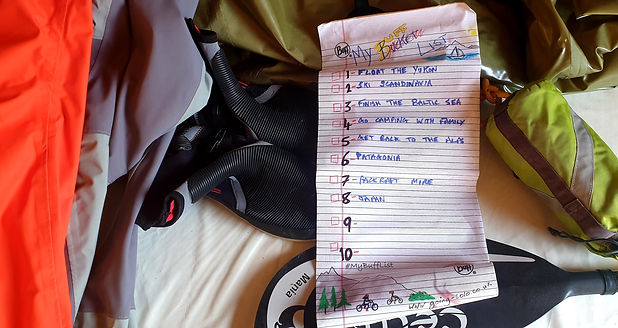 Buff
MY BUFF BUCKET LIST
1- FLOAT THE YUKON
2- SKI SCANDINAVIA
3- FINISH THE BALTIC SEA
4- GO CAMPING WITH FAMILY
5- GET BACK TO THE ALPS
6- PATAGONIA
7- PACKRAFT MORE
8- JAPAN
9-
10-
#MyBuffList
Buff
www.going-solo.co.uk
Mania